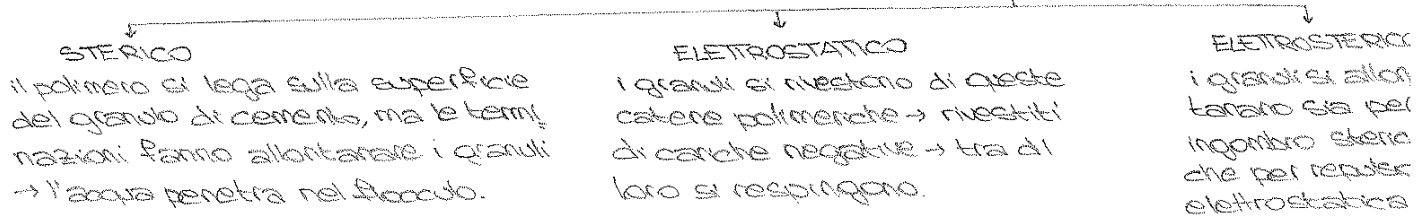 STERICO
il polimero si lega sulla superficie
del granulo di cemento, ma le termi
nazioni fanno allontanare i granuli
→ l'acqua penetra nel flocculo.
ELETTROSTATICO
i granuli si rivestono di queste
catene polimeriche → rivestiti
di cariche negative → tra di
loro si respingono.
ELETTROSTERICO
i granuli si allon
tanano sia per
ingombro steric
che per repulsi
elettrostatica